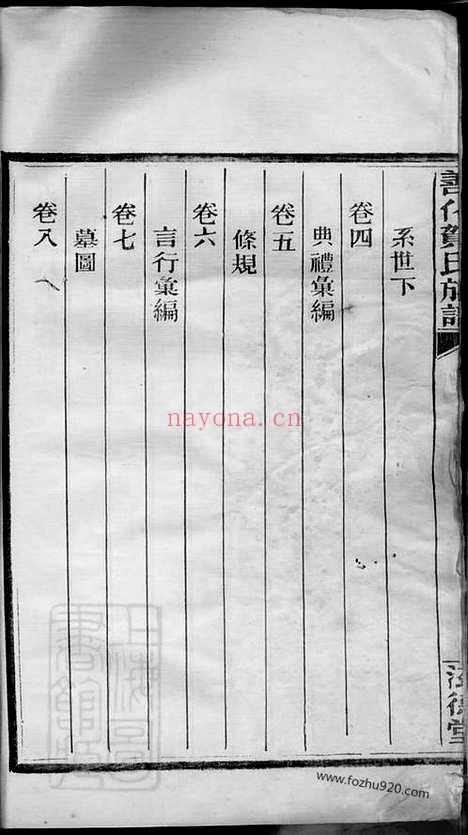 善化賀氏族譜
系世下
卷四
典禮彙編
卷五
條規
卷六
言行彙編
卷七
墓圖
卷八
nayona.cn
www.fozhu920.com